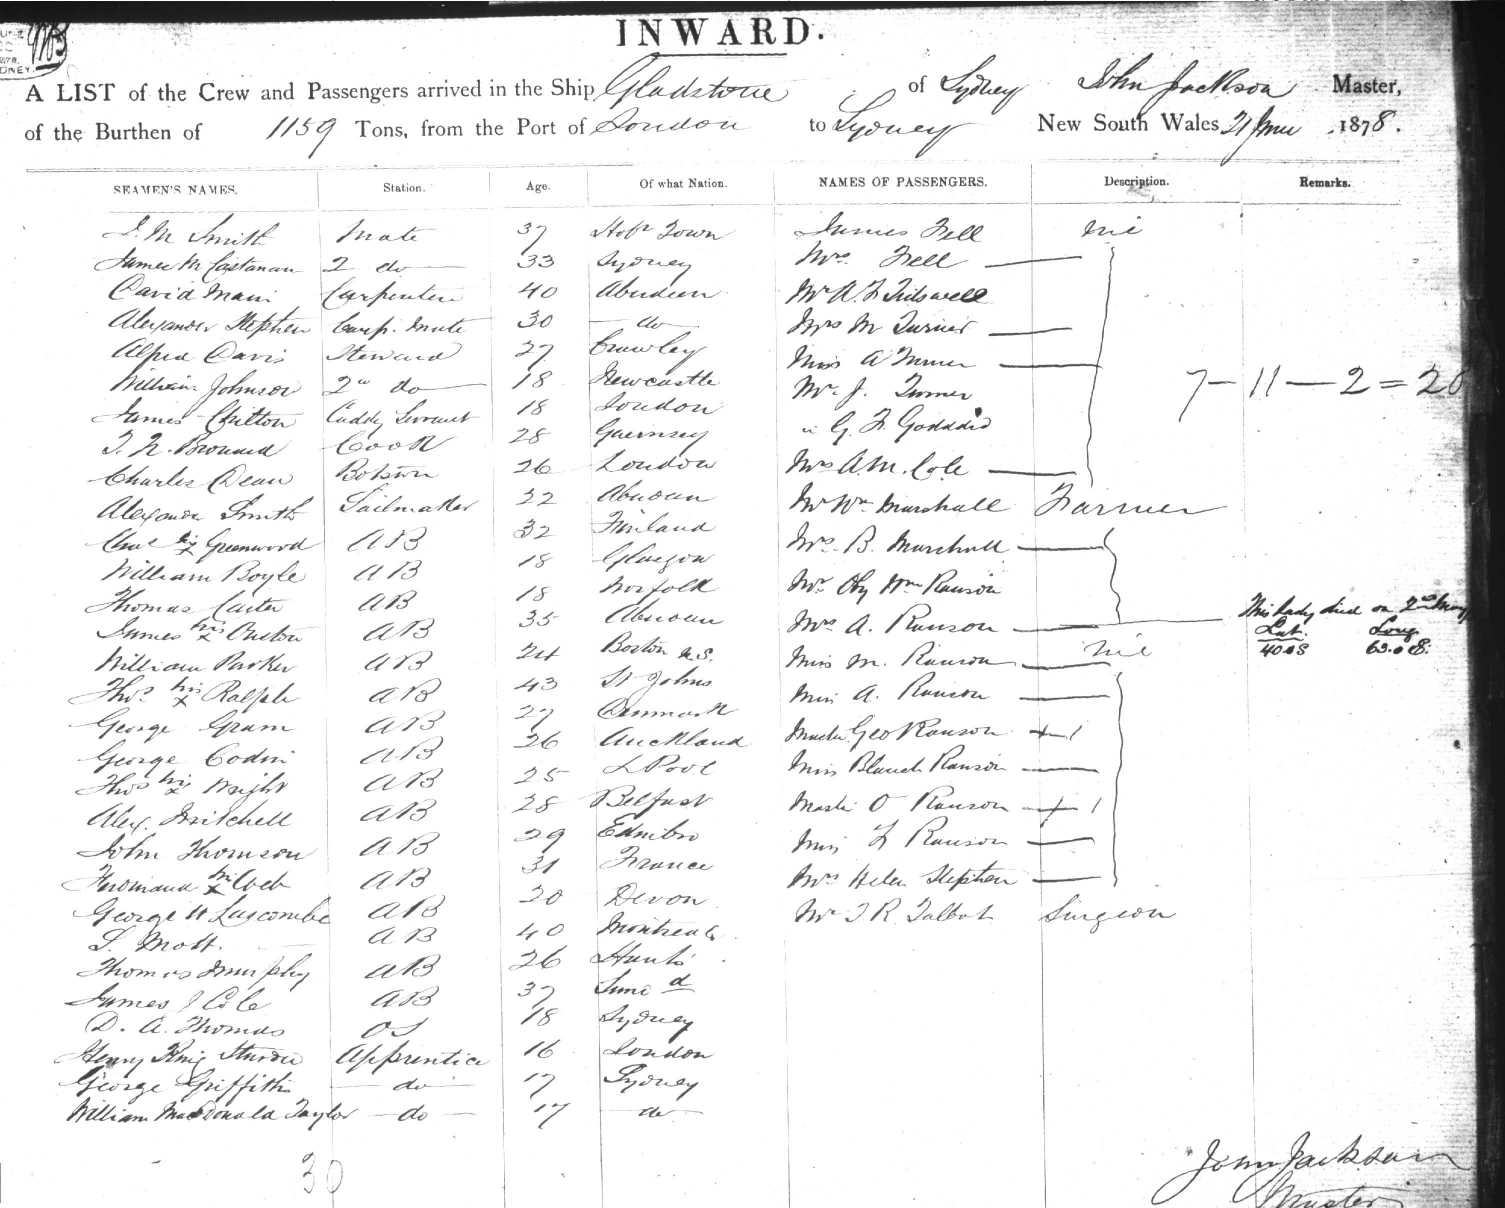 INWARD.
A LIST of the Crew and Passengers arrived in the Ship Gladstone of Sydney John Jackson Master,
of the Burthen of 1159 Tons, from the Port of London to Sydney New South Wales 21 June 1878.
SEAMEN'S NAMES. Station. Age. Of what Nation. NAMES OF PASSENGERS. Description. Remarks.
Smith Mate 37 Hobt Town James Fell nil
James M 2 do 33 Sydney Mrs Fell
David Main Carpenter 40 Aberdeen Mr A. F.
Alexander Stephen Carp. Mate 30 do Mrs M Turner
Alfred Davis Steward 27 Crawley Miss A Turner
William Johnson 2nd do 18 Newcastle Mr J. Turner 7 - 11 - 2 = 20
James Chilton Cuddy Servant 18 London " G. F. Goddard
Cook 28 Guernsey
Charles Dean Botswn 26 London Mrs A. M. Cole
Alexander Smith Sailmaker 22 Aberdeen Mr Wm Marshall Farmer
Chas his x Greenwood AB 32 Finland Mrs B. Marshall
William Boyle AB 18 Glasgow
Thomas Carter AB 18 Norfolk Mr Wm Ranson
James his x AB 35 Aberdeen Mrs A. Ranson This lady died on 2nd May
William Parker AB 24 Boston U.S. Miss M. Ranson nil Lat. 40.0 S Long 63.0 E.
Thos his x Ralph AB 43 St Johns Miss A. Ranson
George Gram AB 27 Denmark
George Codin AB 26 Auckland Master Geo Ranson + 1
Thos his x Wright AB 25 LPool Miss Blanch Ranson
Alex. Mitchell AB 28 Belfast Master O Ranson + 1
John Thomson AB 29 Edinbro Miss F Ranson
his x AB 31 France Mrs Helen Stephen
George H Luscombe AB 20 Devon Mr T R Talbot Surgeon
Mott. AB 40 Montreal
Thomas Murphy AB 26 Hants
James J Cole AB 37
D. A. Thomas OS 18 Sydney
Henry King Apprentice 16 London
George Griffiths do 17 Sydney
William MacDonald Taylor do 17 do
30
John Jackson
Master